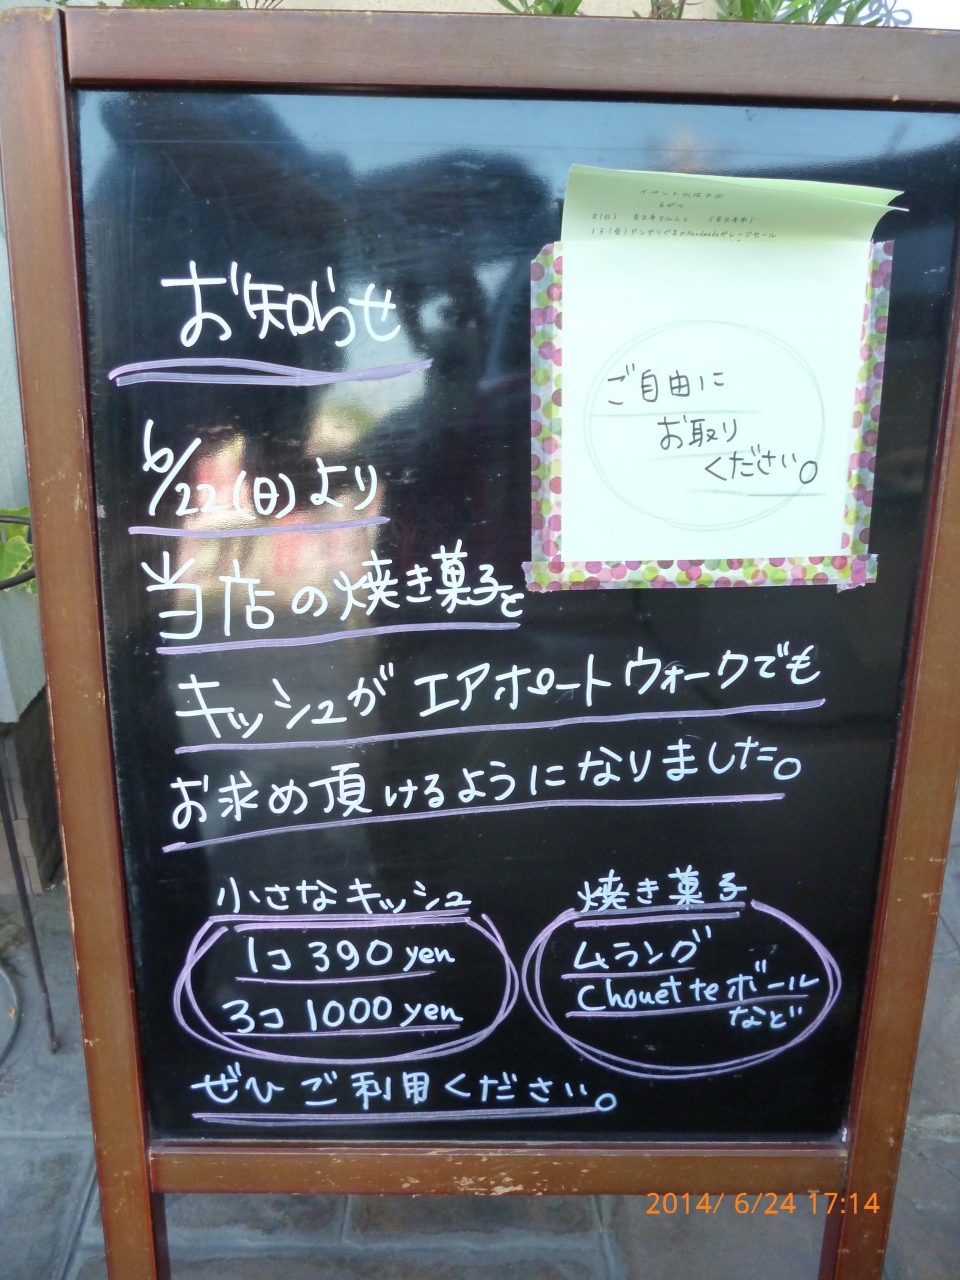 お知らせ
6/22(日)より
当店の焼き菓子と
キッシュがエアポートウォークでも
お求め頂けるようになりました。
小さなキッシュ
1コ 390 yen
3コ 1000 yen
焼き菓子
ムラング
Chouetteボール
など
ぜひご利用ください。
13(金)ドングリぐまのHandmadeガレージセール
ご自由に
お取り
ください。
2014/ 6/24 17:14